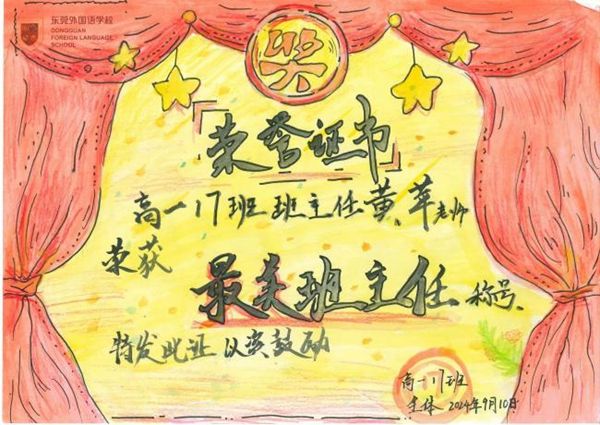 东莞外国语学校
DONGGUAN
FOREIGN LANGUAGE
SCHOOL
奖
荣誉证书
高一17班班主任黄苹老师
荣获
最美班主任称号、
特发此证 以资鼓励
高一17班
全体 2024年9月10日